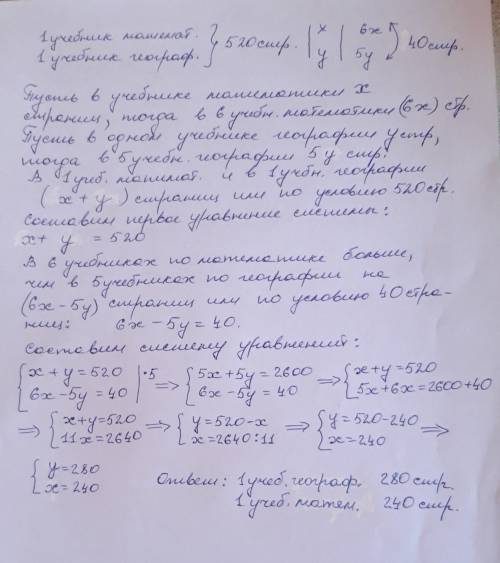 1 учебник математ. } 520 стр. | x | 6x } 40 стр.
1 учебник географ. } | y | 5y
Пусть в учебнике математики x
страниц, тогда в 6 учебн. математики (6x) стр.
Пусть в одном учебнике географии y стр,
тогда в 5 учебн. географии 5y стр.
В 1 учеб. математ. и в 1 учебн. географии
( x + y ) страниц или по условию 520 стр.
Составим первое уравнение системы:
x + y = 520
В 6 учебниках по математике больше,
чем в 5 учебниках по географии на
(6x - 5y) страниц или по условию 40 стра-
ниц: 6x - 5y = 40.
Составим систему уравнений:
{ x + y = 520 | ·5 => { 5x + 5y = 2600 => { x + y = 520
{ 6x - 5y = 40 | { 6x - 5y = 40 { 5x + 6x = 2600 + 40
=> { x + y = 520 => { y = 520 - x => { y = 520 - 240 =>
{ 11x = 2640 { x = 2640 : 11 { x = 240
{ y = 280
{ x = 240
Ответ: 1 учеб. географ. 280 стр.
1 учеб. матем. 240 стр.